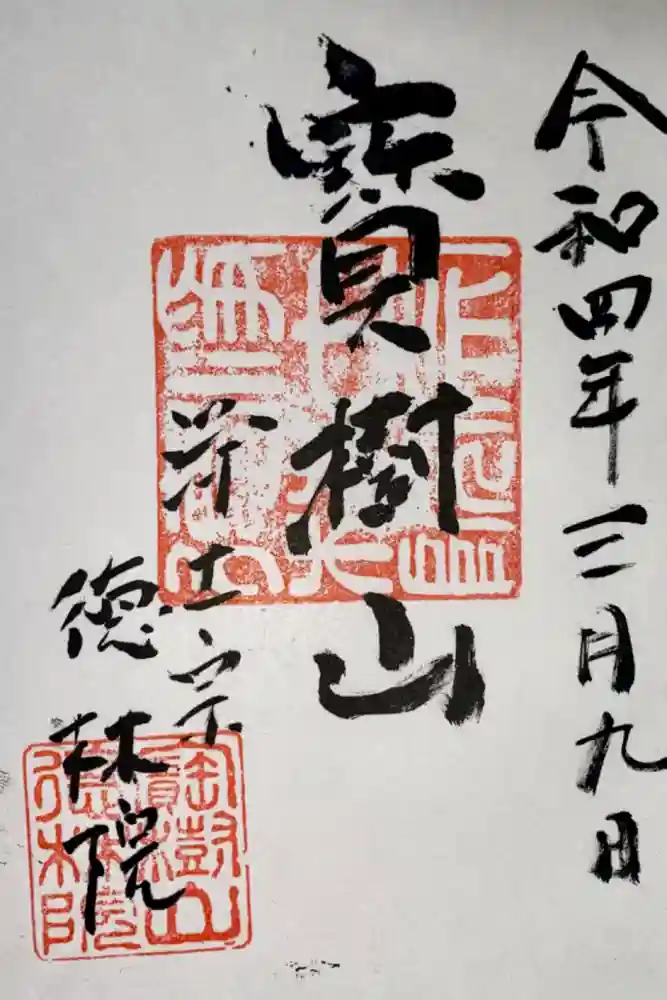 令和四年三月九日
寳樹山
浄土宗
徳林院
寳樹山
徳林院